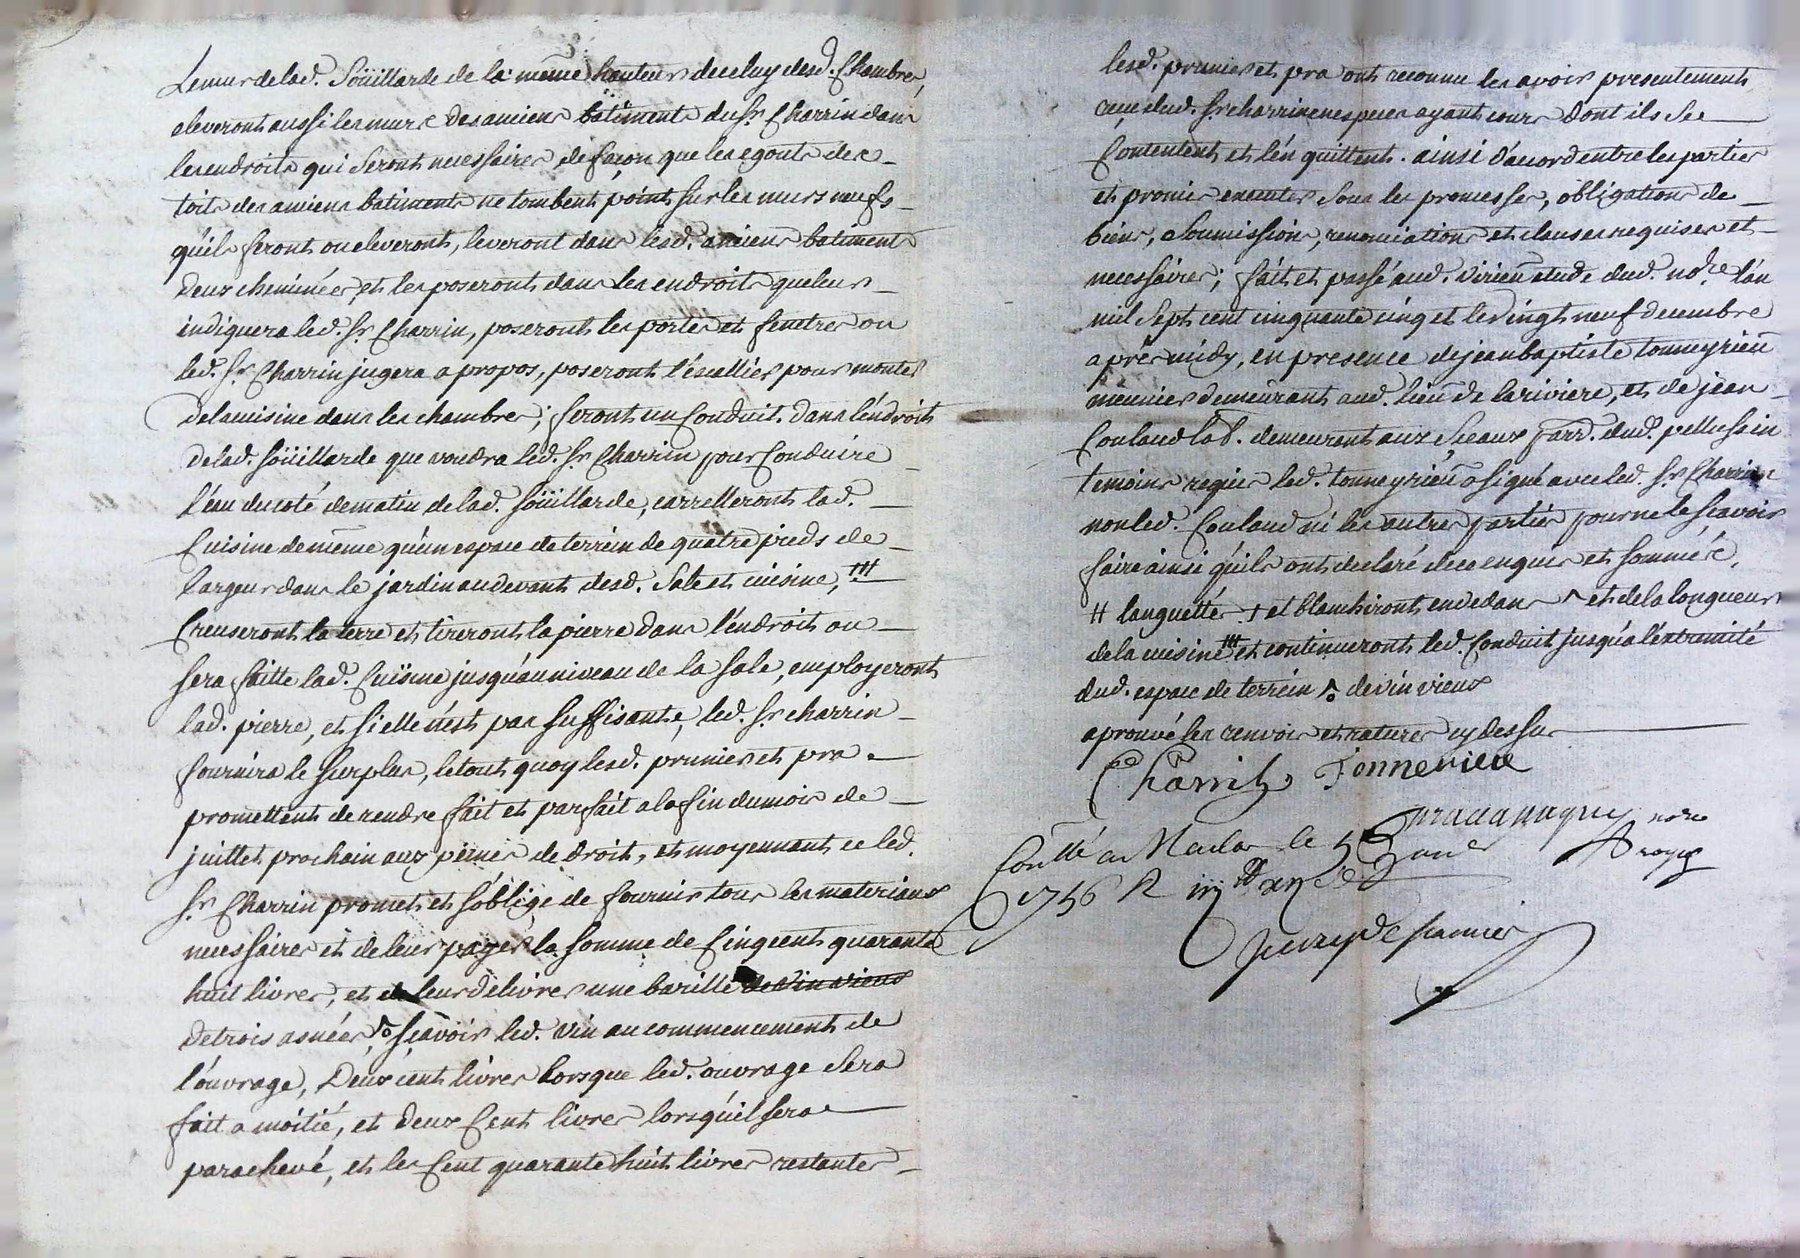 Le mur de lad. Soüillarde de la même hauteur de celuy desd. Chambres,
eleveront aussi les murs des anciens batiments du Sr. Charrin dans
les endroits qui seront necessaires de façon que les egouts des
toits des anciens batiments ne tombent point sur les murs neufs
qu'ils feront ou eleveront, leveront dans lesd. anciens batiments
deux cheminées et les poseront dans les endroits que leur
indiquera led. Sr. Charrin, poseront les portes et fenetres ou
led. Sr. Charrin jugera a propos, poseront l'escallier pour monter
de la cuisine dans les chambres; feront un Conduit dans l'endroit
de lad. soüillarde que voudra led. Sr. Charrin pour Conduire
l'eau du coté de matin de lad. soüillarde, carrelleront lad.
Cuisine de même qu'un espace de terrein de quatre pieds de
largeur dans le jardin au devant desd. Sale et cuisine, ⧻
Creuseront la terre et tireront la pierre dans l'endroit ou
sera faitte lad. Cuisine jusqu'au niveau de la sale, employeront
lad. pierre, et si elle n'est pas suffisante, led. Sr. charrin
fournira le surplus, le tout quoy lesd. prunier et pra
promettent de rendre fait et parfait a la fin du mois de
juillet prochain aux peines de droit, et moyennant ce led.
Sr. Charrin promet et s'oblige de fournir tous les materiaux
necessaires et de leur payer la somme de Cinq cent quarante
huit livres, et de leur delivrer une barille de vin vieux
de trois asnées, ꝸ sçavoir led. vin au commencement de
l'ouvrage, Deux cent livres lorsque led. ouvrage sera
fait a moitié, et deux Cent livres lorsqu'il sera
parachevé, et les Cent quarante huit livres restantes
lesd. prunier et pra ont reconnu les avoir presentement
receu dud. Sr. charrin en especes ayant cours dont ils se
Contentent et l'en quittent. ainsi d'accord entre les parties
et promis executer sous les promesses, obligations de
biens, soumissions, renonciations et clauses requises et
necessaires; fait et passé aud. Virieu etude dud. nore. l'an
mil sept cent cinquante cinq et le vingt neuf decembre
après midy, en presence de jean baptiste tonneyrieu
meunier demeurant aud. lieu de la riviere, et de jean
Couland lab. demeurant aux Sceaux parr. dud. pellussin
temoins requis led. tonneyrieu a signé avec led. Sr. Charrin
non led. Couland ni les autres parties pour ne le sçavoir
faire ainsi qu'ils ont declaré de ce enquis et sommés.
⧺ languette . + et blanchiront en dedans ^ et de la longueur
de la cuisine ⧻ et continueront led. Conduit jusqu'a l'extremité
dud. espace de terrein ꝸ de vin vieux
aprouvé les renvois et ratures cy dessus
Charrin Tonnerieu
nore
royal
Conllé a Maclas le 5 Janer
1756